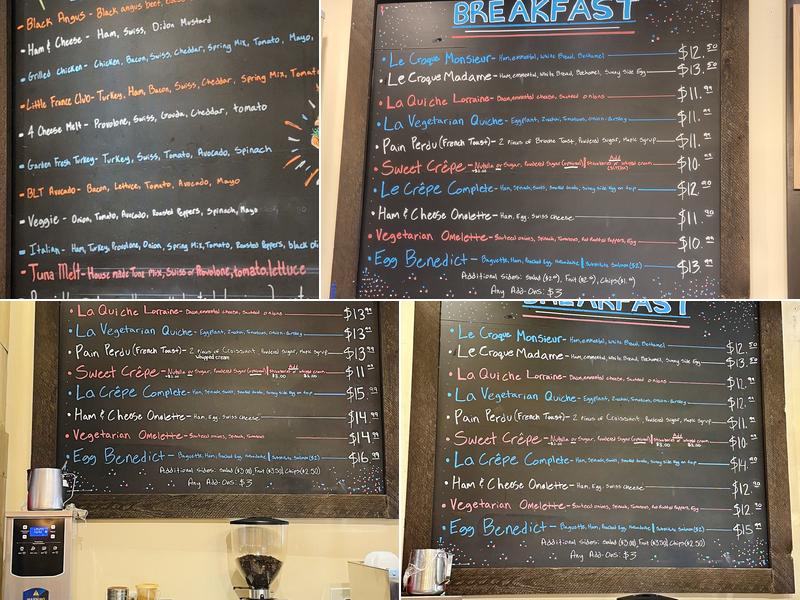 - Black Angus - Black angus beef,
- Ham & Cheese - Ham, Swiss, Dijon Mustard
- Grilled Chicken - Chicken, Bacon, Swiss, Cheddar, Spring Mix, Tomato, Mayo,
- Little France Club - Turkey, Ham, Bacon, Swiss, Cheddar, Spring Mix, Tomato
- 4 Cheese Melt - Provolone, Swiss, Gouda, Cheddar, tomato
- Garden Fresh Turkey - Turkey, Swiss, Tomato, Avocado, Spinach
- BLT Avocado - Bacon, Lettuce, Tomato, Avocado, Mayo
- Veggie - Onion, Tomato, Avocado, Roasted Peppers, Spinach, Mayo
- Italian - Ham, Turkey, Provolone, Onion, Spring Mix, Tomato, Roasted Peppers, black oli
- Tuna Melt - House made Tuna Mix, Swiss or Provolone, tomato, lettuce
BREAKFAST
• Le Croque Monsieur - Ham, emmental, White Bread, Bechamel $12.50
• Le Croque Madame - Ham, emmental, White Bread, Bechamel, Sunny Side Egg $13.50
• La Quiche Lorraine - Bacon, emmental cheese, Sauteed onions $11.99
• La Vegetarian Quiche - Eggplant, Zucchini, Tomatoes, Onion $11.
• Pain Perdu (French Toast) - 2 pieces of Brioche Toast, Powdered Sugar, Maple Syrup $11.
• Sweet Crêpe - Nutella or Sugar, Powdered Sugar (optional) | Add Strawberries or whipped cream $10.
• Le Crêpe Complete - Ham, Spinach, Swiss, Sauteed tomato, Sunny side Egg on top $12.
• Ham & Cheese Omelette - Ham, Egg, Swiss Cheese $11.
• Vegetarian Omelette - Sauteed onions, Spinach, Tomatoes, Red Roasted Peppers, Egg $10.
• Egg Benedict - Baguette, Ham, Poached Egg, Hollandaise | Substitute Salmon $13.
Additional Sides: Salad Fruit Chips
Any Add-Ons: $3
• La Quiche Lorraine - Bacon, emmental cheese, Sauteed onions $13
• La Vegetarian Quiche - Eggplant, Zucchini, Tomatoes, Onion $13
• Pain Perdu (French Toast) - 2 Pieces of Croissant, Powdered Sugar, Maple Syrup $13.99
whipped cream
• Sweet Crêpe - Nutella or Sugar, Powdered Sugar (optional) | Add Strawberries or whipped cream $11
$3.00 $3.00
• La Crêpe Complete - Ham, Spinach, Swiss, Sauteed tomato, Sunny side Egg on top $15.99
• Ham & Cheese Omelette - Ham, Egg, Swiss Cheese $14.99
• Vegetarian Omelette - Sauteed onions, Spinach, Tomatoes $14.99
• Egg Benedict - Baguette, Ham, Poached Egg, Hollandaise | Substitute Salmon ($2) $16.99
Additional Sides: Salad ($3.00) Fruit ($3.50) Chips ($2.50)
Any Add-Ons: $3
WARNING
BREAKFAST
• Le Croque Monsieur - Ham, emmental, White Bread, Bechamel $12.
• Le Croque Madame - Ham, emmental, White Bread, Bechamel, Sunny Side Egg $13.50
• La Quiche Lorraine - Bacon, emmental cheese, Sauteed onions $12.99
• La Vegetarian Quiche - Eggplant, Zucchini, Tomatoes, Onion $12.
• Pain Perdu (French Toast) - 2 Pieces of Croissant, Powdered Sugar, Maple Syrup $11.
• Sweet Crêpe - Nutella or Sugar, Powdered Sugar (optional) | Add Strawberries or whipped cream $10.
$3.00 $3.00
• La Crêpe Complete - Ham, Spinach, Swiss, Sauteed tomato, Sunny side Egg on top $14.
• Ham & Cheese Omelette - Ham, Egg, Swiss Cheese $12.
• Vegetarian Omelette - Sauteed onions, Spinach, Tomatoes, Red Roasted Peppers, Egg $12.
• Egg Benedict - Baguette, Ham, Poached Egg, Hollandaise | Substitute Salmon ($2) $15.99
Additional Sides: Salad ($3.00) Fruit ($3.50) Chips ($2.50)
Any Add-Ons: $3